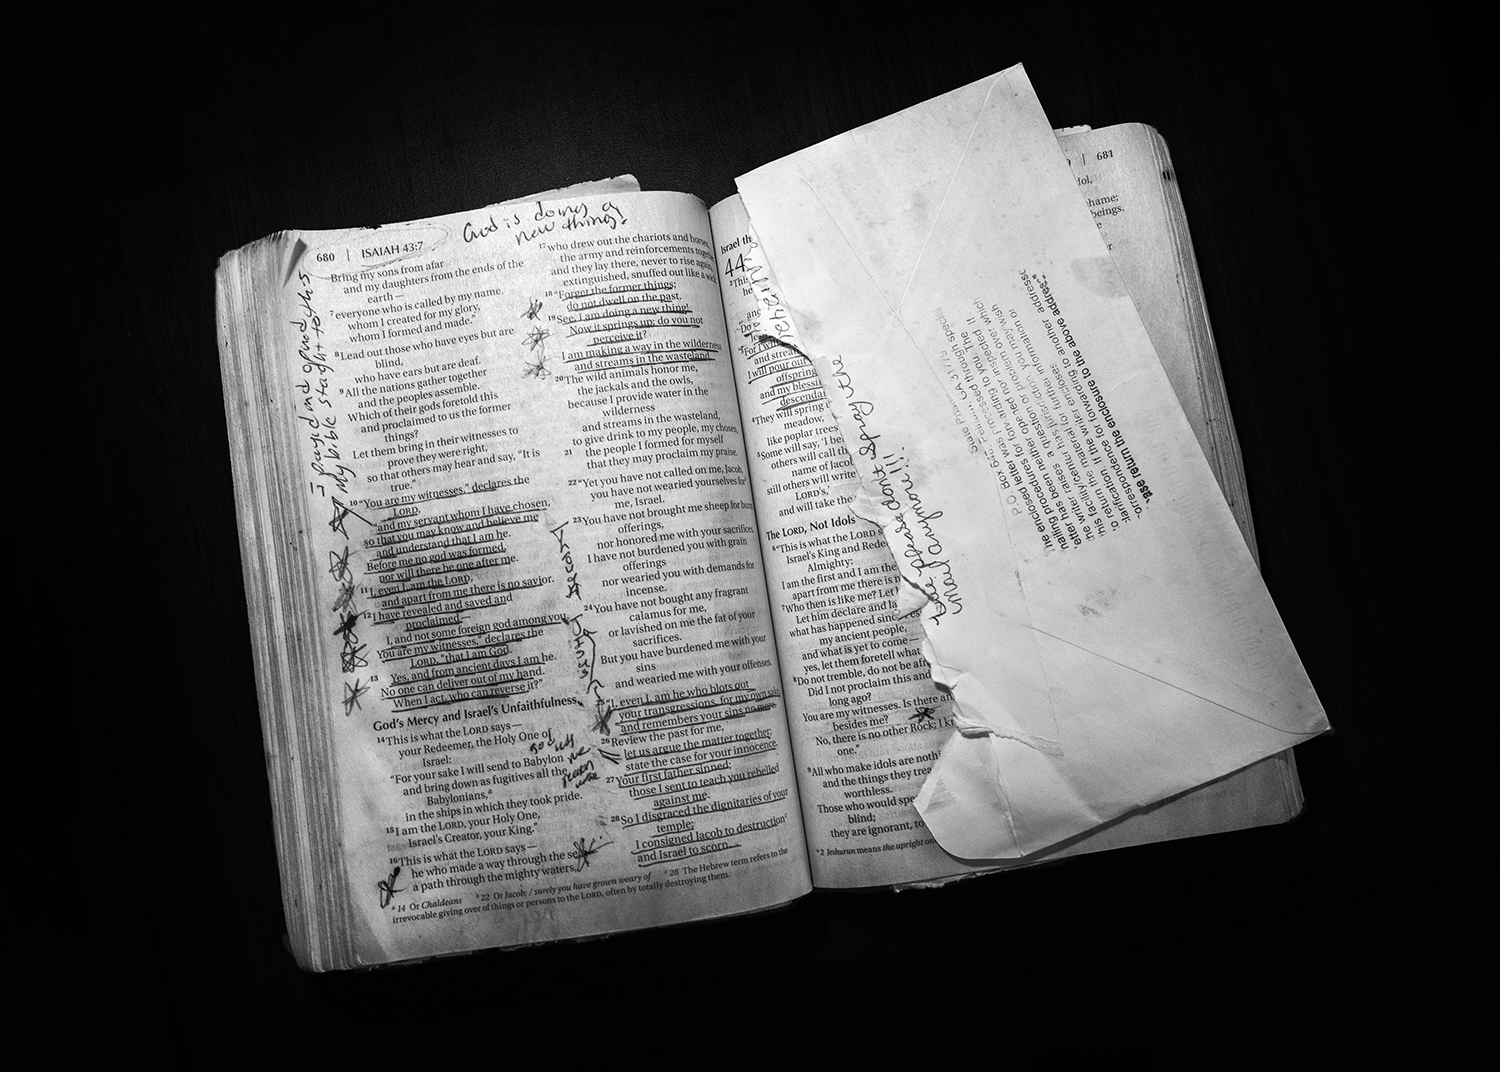 God is doing a
new thing!
680 | ISAIAH 43:7
Bring my sons from afar
and my daughters from the ends of the
earth—
7 everyone who is called by my name,
whom I created for my glory,
whom I formed and made.”
8 Lead out those who have eyes but are
blind,
who have ears but are deaf.
9 All the nations gather together
and the peoples assemble.
Which of their gods foretold this
and proclaimed to us the former
things?
Let them bring in their witnesses to
prove they were right,
so that others may hear and say, “It is
true.”
10 “You are my witnesses,” declares the
LORD,
“and my servant whom I have chosen,
so that you may know and believe me
and understand that I am he.
Before me no god was formed,
nor will there be one after me.
11 I, even I, am the LORD,
and apart from me there is no savior.
12 I have revealed and saved and
proclaimed—
I, and not some foreign god among you.
You are my witnesses,” declares the
LORD, “that I am God.
13 Yes, and from ancient days I am he.
No one can deliver out of my hand.
When I act, who can reverse it?”
God’s Mercy and Israel’s Unfaithfulness
14 This is what the LORD says—
your Redeemer, the Holy One of
Israel:
“For your sake I will send to Babylon
and bring down as fugitives all the
Babylonians,a
in the ships in which they took pride.
15 I am the LORD, your Holy One,
Israel’s Creator, your King.”
16 This is what the LORD says—
he who made a way through the sea,
a path through the mighty waters,
17 who drew out the chariots and horses,
the army and reinforcements together,
and they lay there, never to rise again,
extinguished, snuffed out like a wick:
18 “Forget the former things;
do not dwell on the past.
19 See, I am doing a new thing!
Now it springs up; do you not
perceive it?
I am making a way in the wilderness
and streams in the wasteland.
20 The wild animals honor me,
the jackals and the owls,
because I provide water in the
wilderness
and streams in the wasteland,
to give drink to my people, my chosen,
21 the people I formed for myself
that they may proclaim my praise.
22 “Yet you have not called on me, Jacob,
you have not wearied yourselves for b
me, Israel.
23 You have not brought me sheep for burnt
offerings,
nor honored me with your sacrifices.
I have not burdened you with grain
offerings
nor wearied you with demands for
incense.
24 You have not bought any fragrant
calamus for me,
or lavished on me the fat of your
sacrifices.
But you have burdened me with your
sins
and wearied me with your offenses.
25 “I, even I, am he who blots out
your transgressions, for my own sake,
and remembers your sins no more.
26 Review the past for me,
let us argue the matter together;
state the case for your innocence.
27 Your first father sinned;
those I sent to teach you rebelled
against me.
28 So I disgraced the dignitaries of your
temple;
I consigned Jacob to destruction c
and Israel to scorn.
a 14 Or Chaldeans b 22 Or Jacob; / surely you have grown weary of c 28 The Hebrew term refers to the
irrevocable giving over of things or persons to the LORD, often by totally destroying them.
my bible
| 681
Israel th
44
2 This
he
and strea
I will pour out
offspring
and my blessi
descenda
4 They will spring
meadow,
like poplar trees
5 Some will say, ‘I be
others will call th
name of Jacob
still others will write
LORD’s,’
and will take the
The LORD, Not Idols
6 “This is what the LORD s
Israel’s King and Rede
Almighty:
I am the first and I am the
apart from me there is n
7 Who then is like me? Let
Let him declare and la
what has happened sinc
my ancient people,
and what is yet to come—
yes, let them foretell what
8 Do not tremble, do not be afr
Did I not proclaim this and
long ago?
You are my witnesses. Is there an
besides me?
No, there is no other Rock; I k
one.”
9 All who make idols are nothi
and the things they trea
worthless.
Those who would spe
blind;
they are ignorant, to
a 2 Jeshurun means the upright on
hame;
beings.
please don't spray the
mail anymore!!!